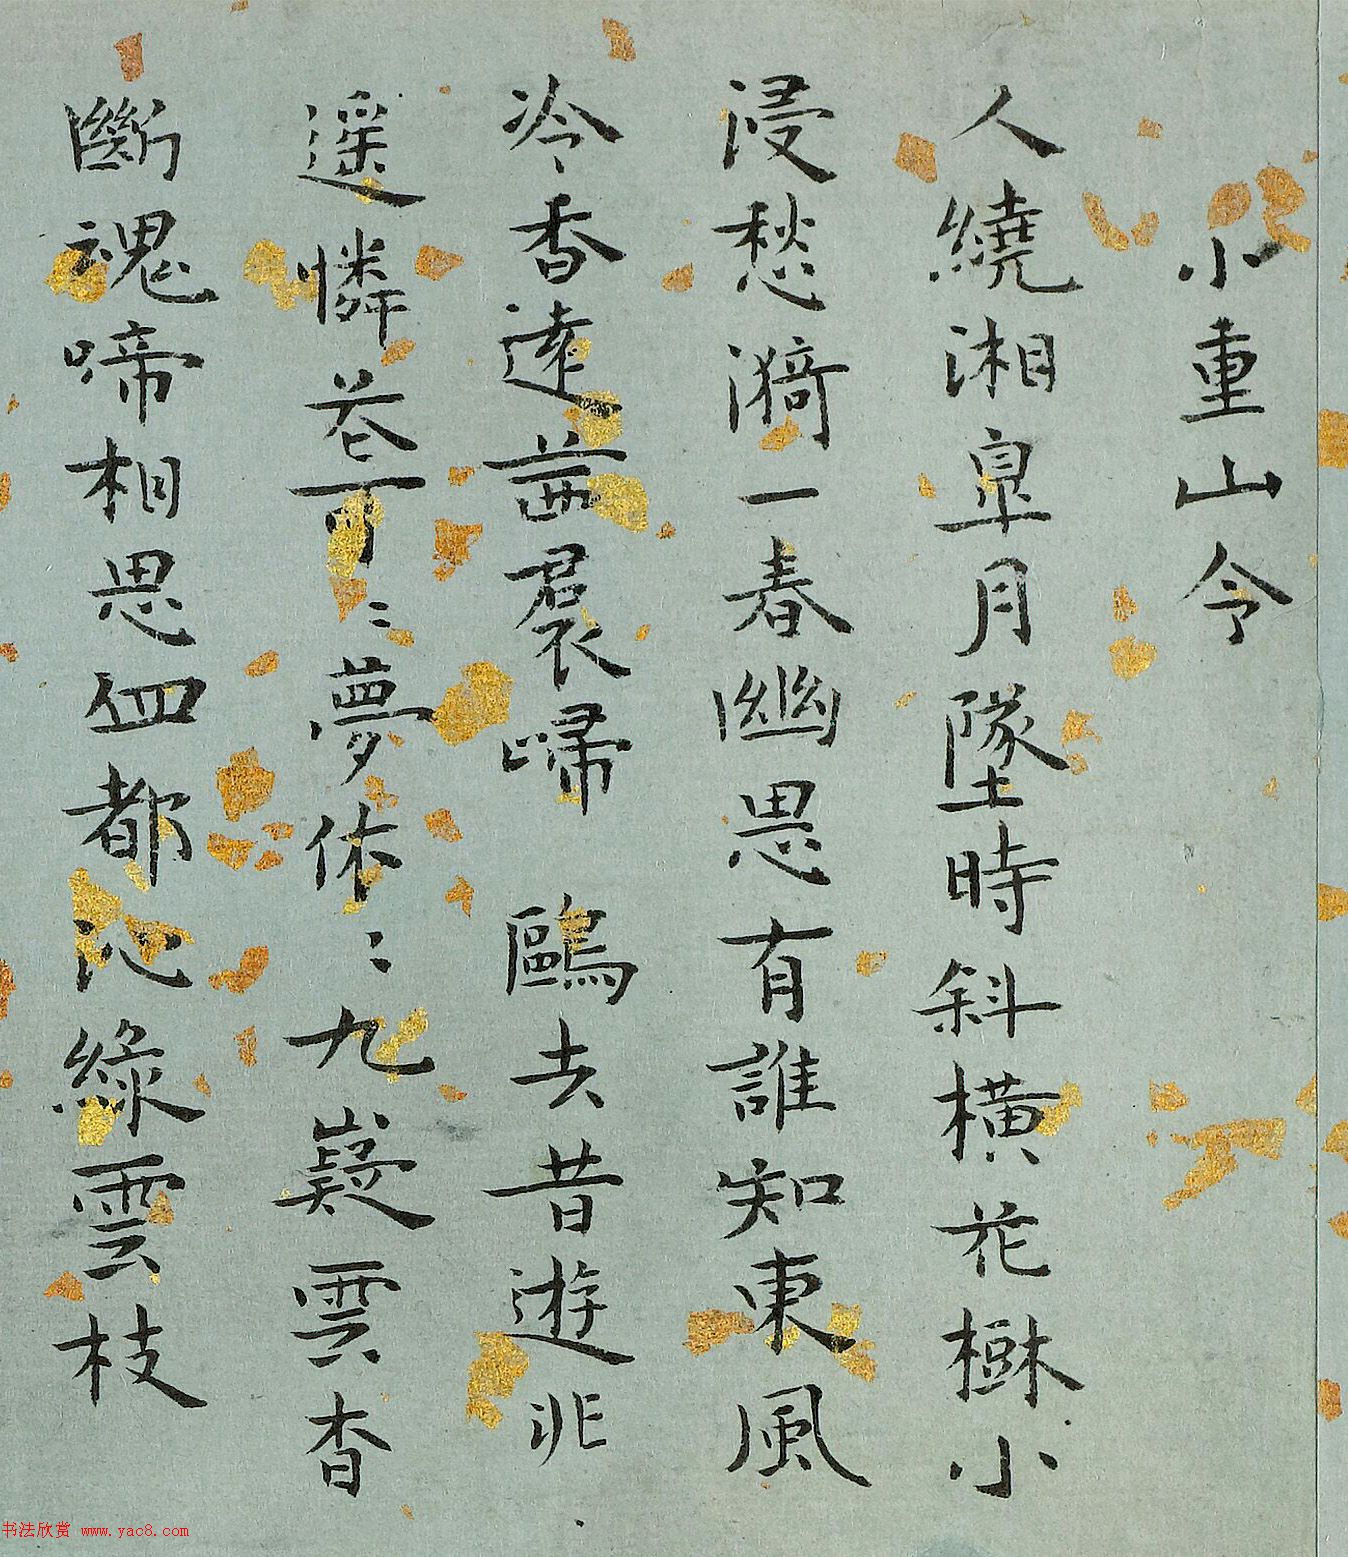 小重山令
人繞湘皐月墜時斜橫花樹小
浸愁漪一春幽思有誰知東風
冷香遠茜裠歸 鷗去昔遊非
遥憐花可〻夢依〻九嶷雲杳
斷魂啼相思血都沁綠雲枝
书法欣赏 www.yac8.com